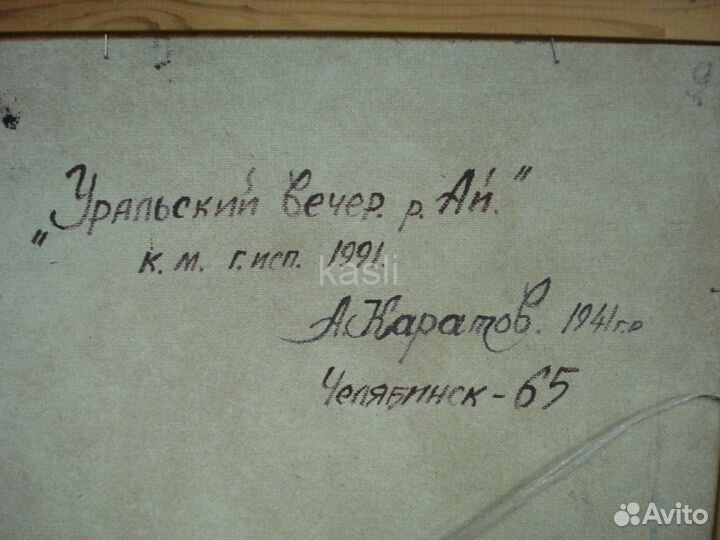 "Уральский вечер. р. Ай."
к. м. г. исп. 1991.
kasli
А. Каратов. 1941 г.р
Челябинск - 65
Avito